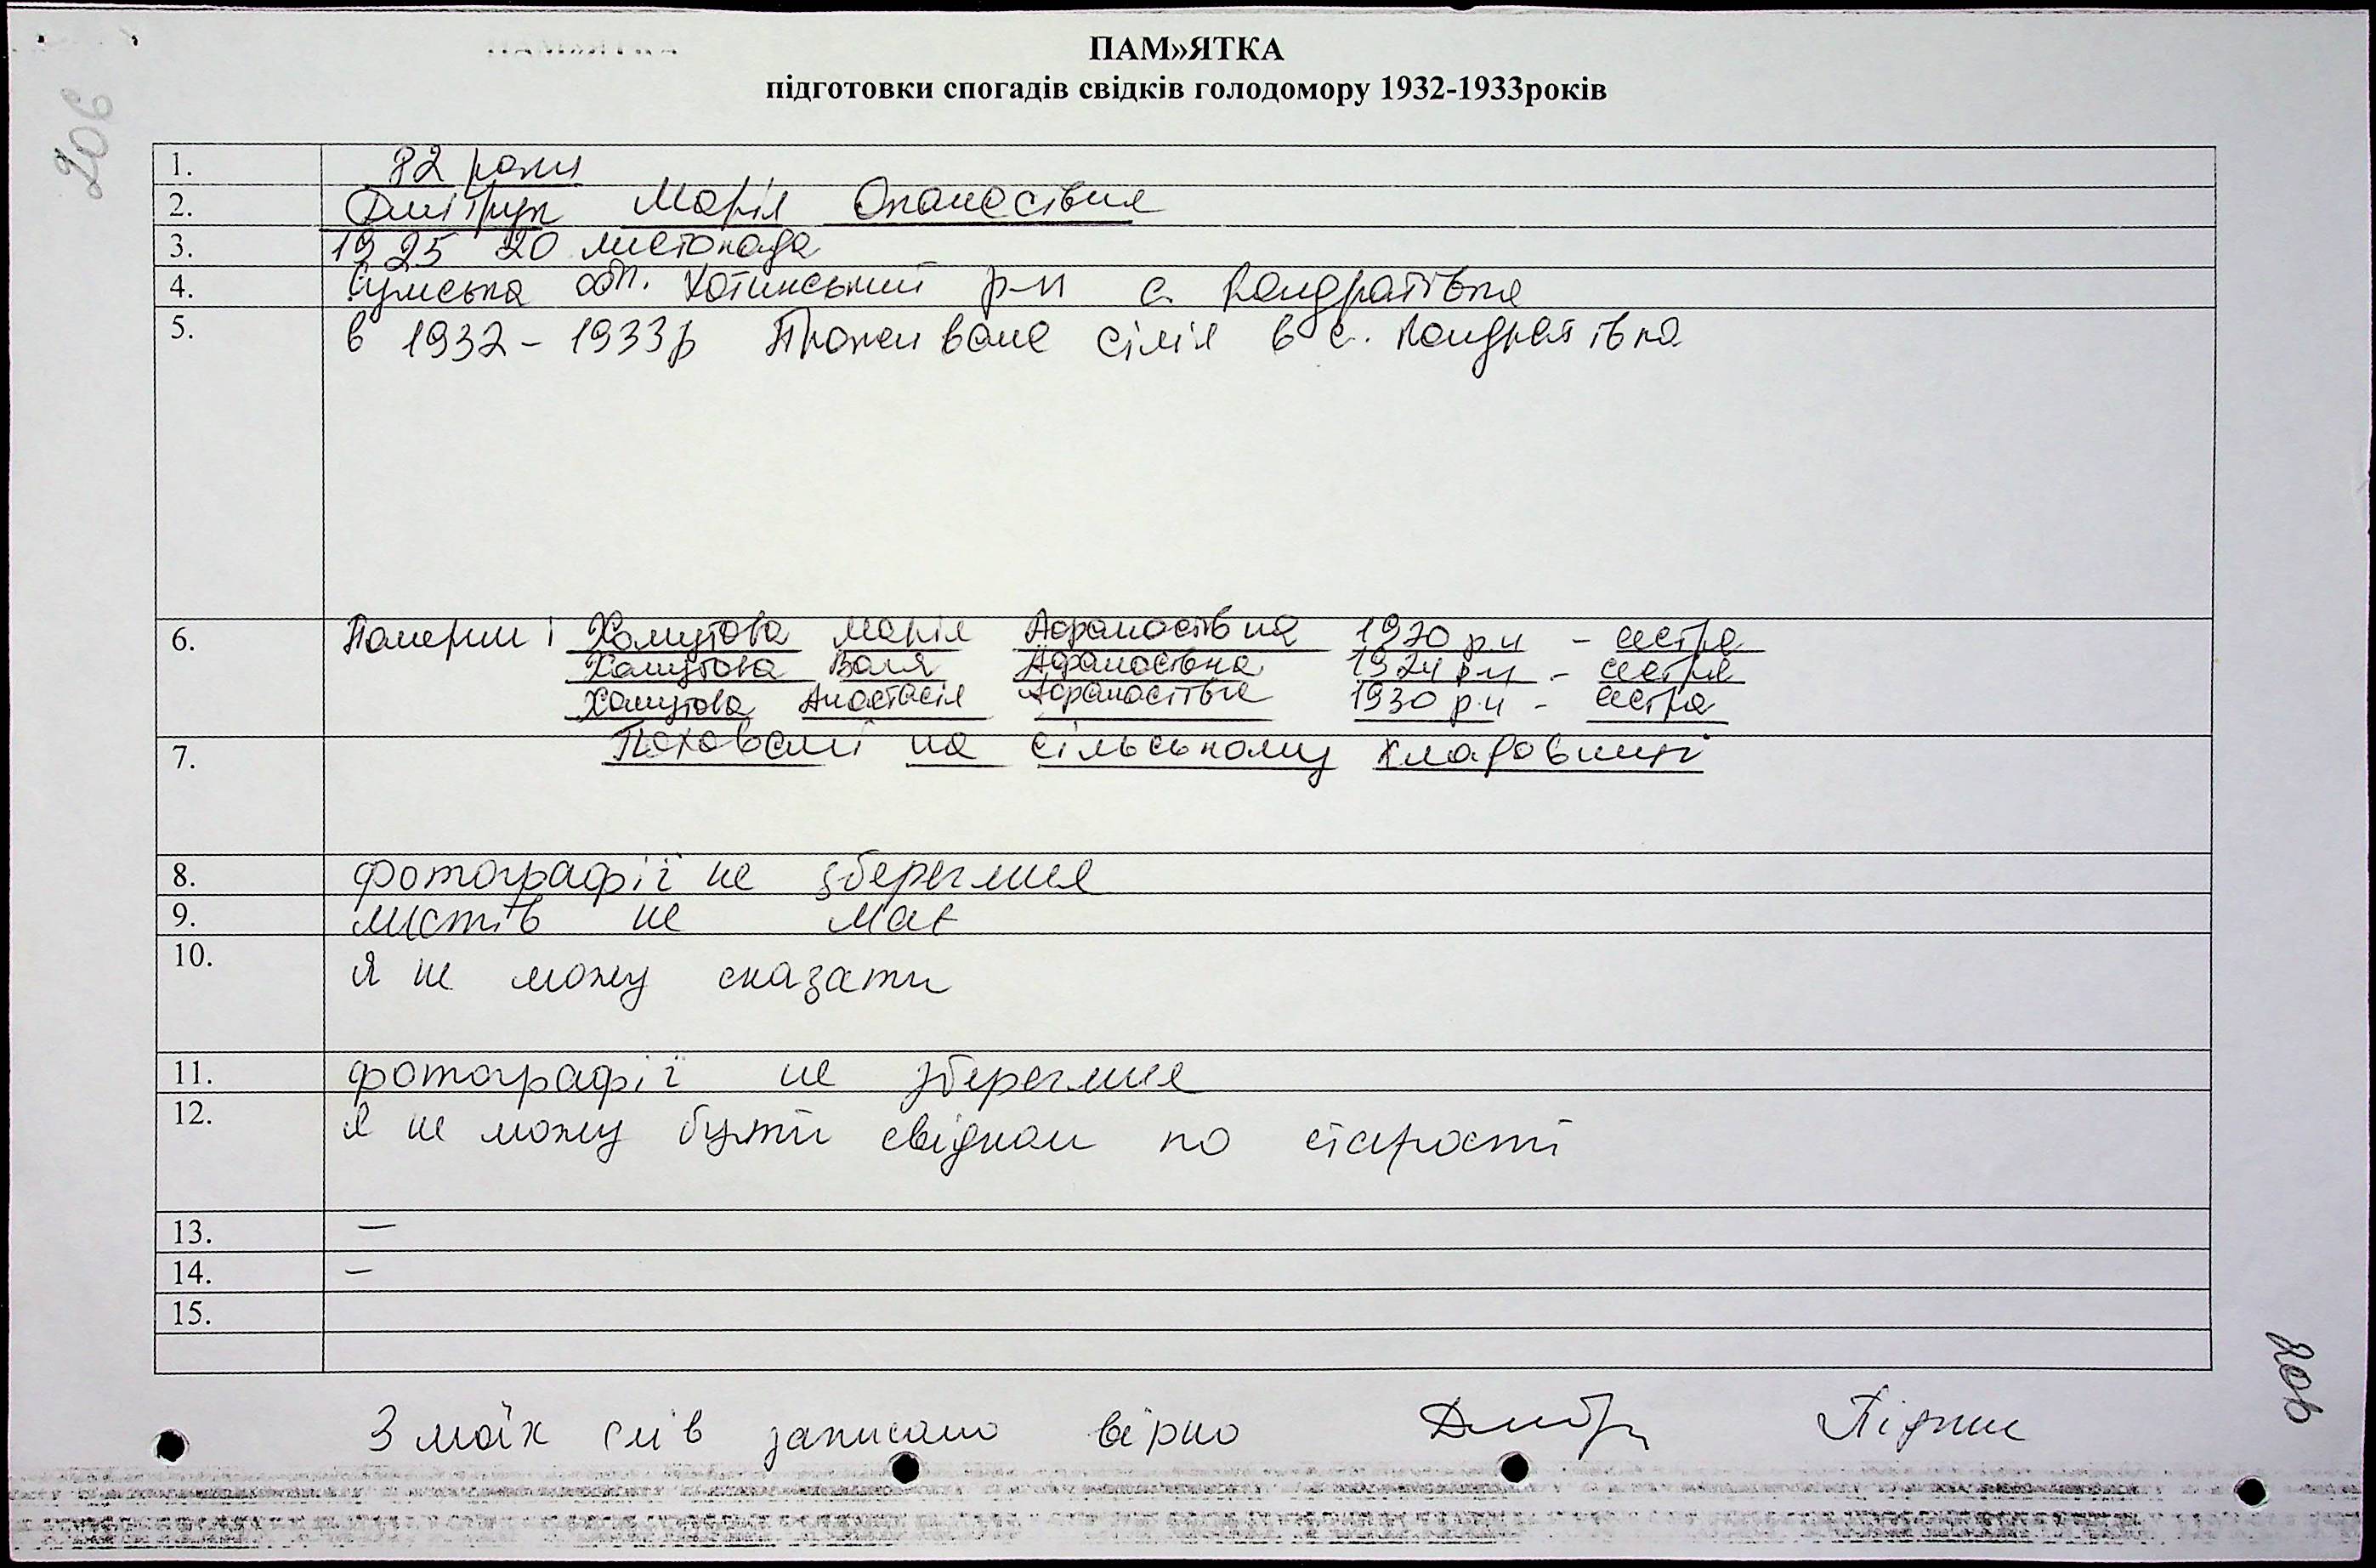 206
ПАМ»ЯТКА
підготовки спогадів свідків голодомору 1932-1933років
1. 82 роки
2. Дмітрук Марія Опанасівна
3. 1925 20 листопада
4. Сумська обл. Хотинський р-н с. Кандратівка
5. в 1932 - 1933р Проживала сімія в с. Кандратівка
6. Померли і Хомутова Марія Афанасівна 1920 р.н - сестра
Хомутова Валя Афанасівна 1924 р.н - сестра
Хомутова Анастасія Афанасітвна 1930 р.н - сестра
7. Поховані на сільському кладовищі
8. фотографії не збереглися
9. листів не має
10. Я не можу сказати
11. фотографії не збереглися
12. Я не можу бути свідком по старості
13. —
14. —
15.
З моїх слів записано вірно Підпис
206